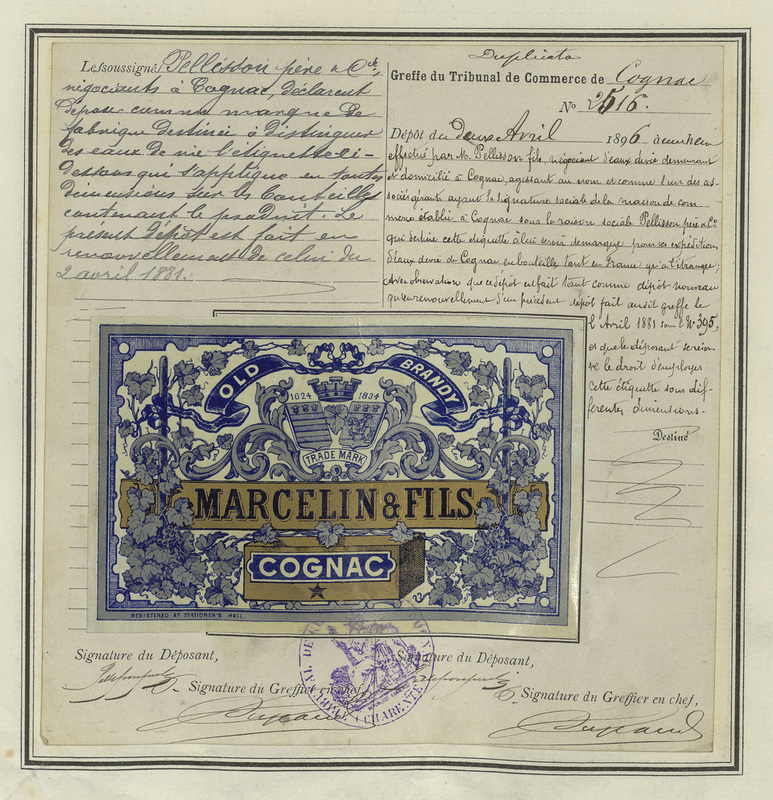 Le soussigné Pellisson père & Cie,
négociants à Cognac, déclarent
déposer comme marque de
fabrique destinée à distinguer
des eaux de vie l'étiquette ci-
dessous qui s'applique en toutes
dimensions sur les bouteilles
contenant le produit. Le
présent dépôt est fait en
renouvellement de celui du
2 avril 1881.
Duplicata
Greffe du Tribunal de Commerce de Cognac
No 2516.
Dépôt du deux Avril 1896 à une heure
effectué par M. Pellisson fils, négociant d'eaux de vie demeurant
et domicilié à Cognac, agissant au nom et comme l'un des as-
sociés gérants ayant la signature sociale de la maison de com
merce établie à Cognac sous la raison sociale Pellisson père & Co
qui destine cette étiquette à lui servir de marque pour ses expéditions
d'eaux de vie de Cognac en bouteilles tant en France qu'à l'étranger,
avec observation que ce dépôt est fait tant comme dépôt nouveau
qu'en renouvellement d'un précédent dépôt fait au dit greffe le
2 Avril 1881 sous le No 395,
et que le déposant se réser-
ve le droit d'employer
cette étiquette sous dif-
férentes dimensions.
Destiné
OLD BRANDY
1624 1834
TRADE MARK
MARCELIN & FILS
COGNAC
REGISTERED AT STATIONER'S HALL
Signature du Déposant,
Signature du Greffier en chef,
Signature du Déposant,
Signature du Greffier en chef,
CHARENTE